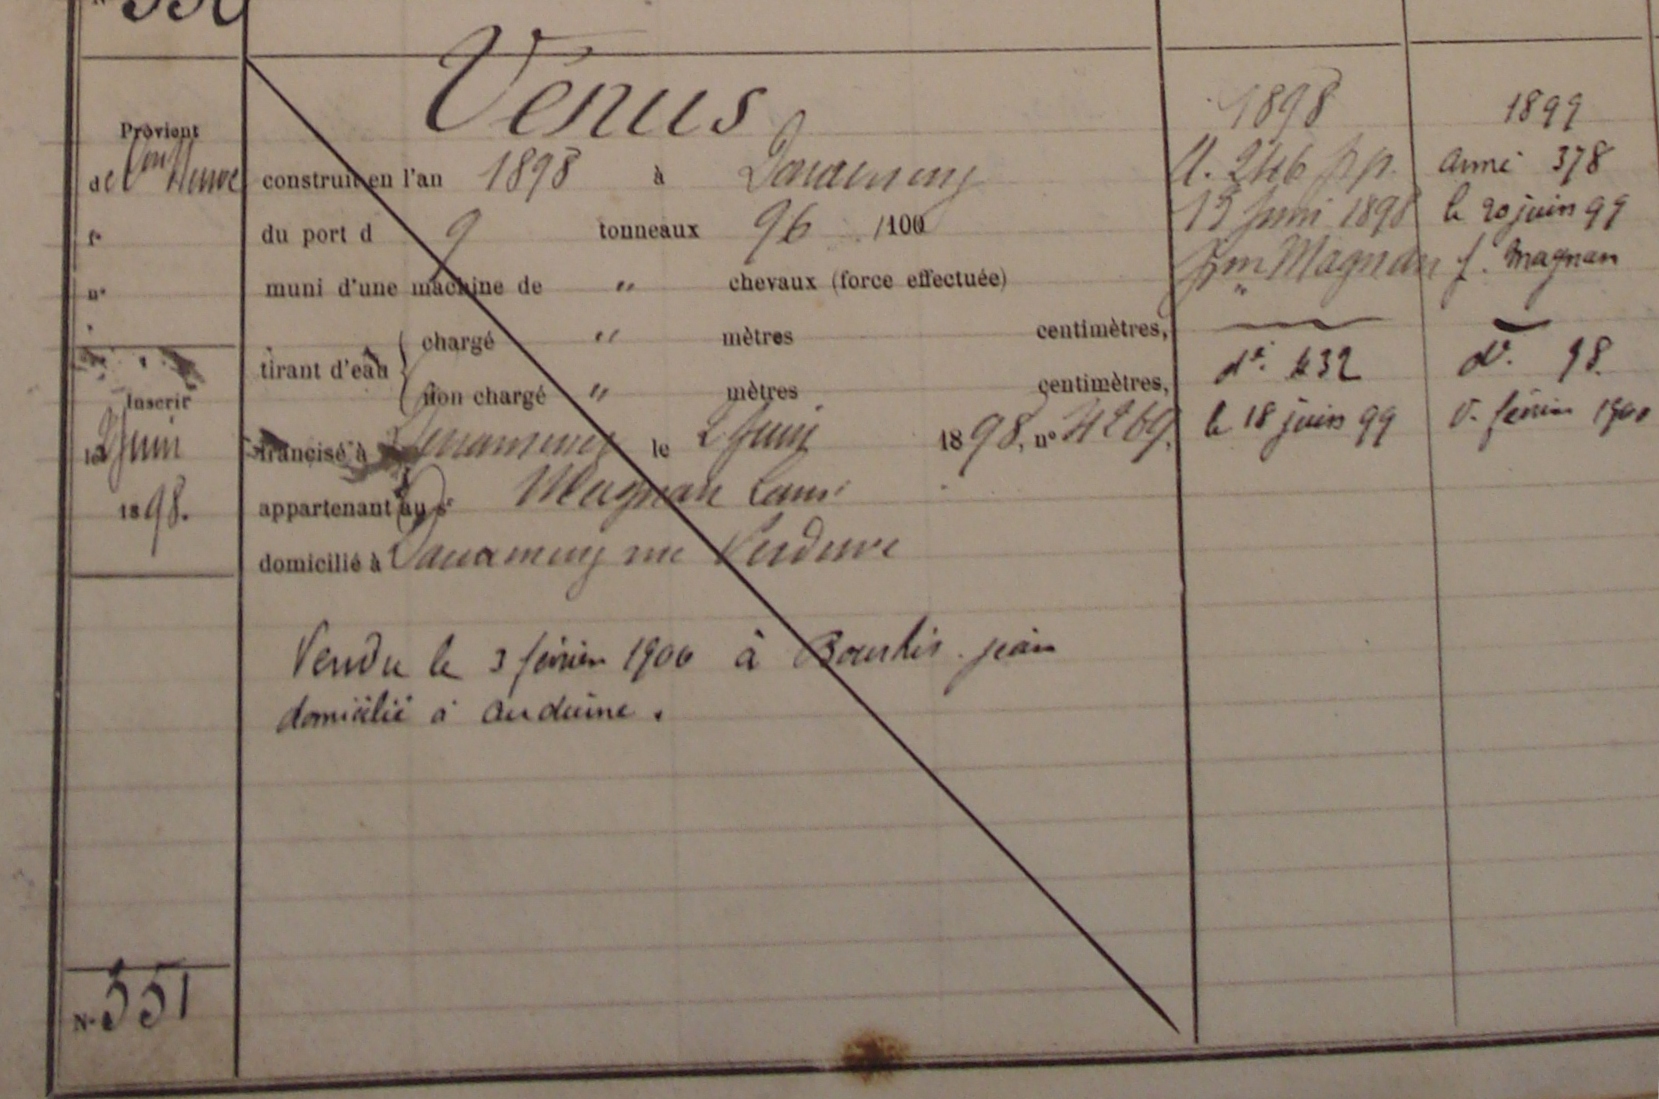 Vénus
Provient
de Con Neuve
construit en l'an 1898 à Douarnenez
fo
du port d 9 tonneaux 96 /100
no
muni d'une machine de " chevaux (force effectuée)
tirant d'eau { chargé " mètres centimètres,
non chargé " mètres centimètres,
Inscrir
le 2 Juin
1898.
francisé à Douarnenez le 2 Juin 1898, no 4269.
appartenant au sr Magnan Louis
domicilié à Douarnenez rue
Vendu le 3 février 1900 à Bourhis jean
domicilié à audierne.
No 551
1898
A. 246 pp.
15 Juin 1898
Magnan
do. 432
le 18 juin 99
1899
armé 378
le 20 juin 99
f. Magnan
do. 98
février 1900